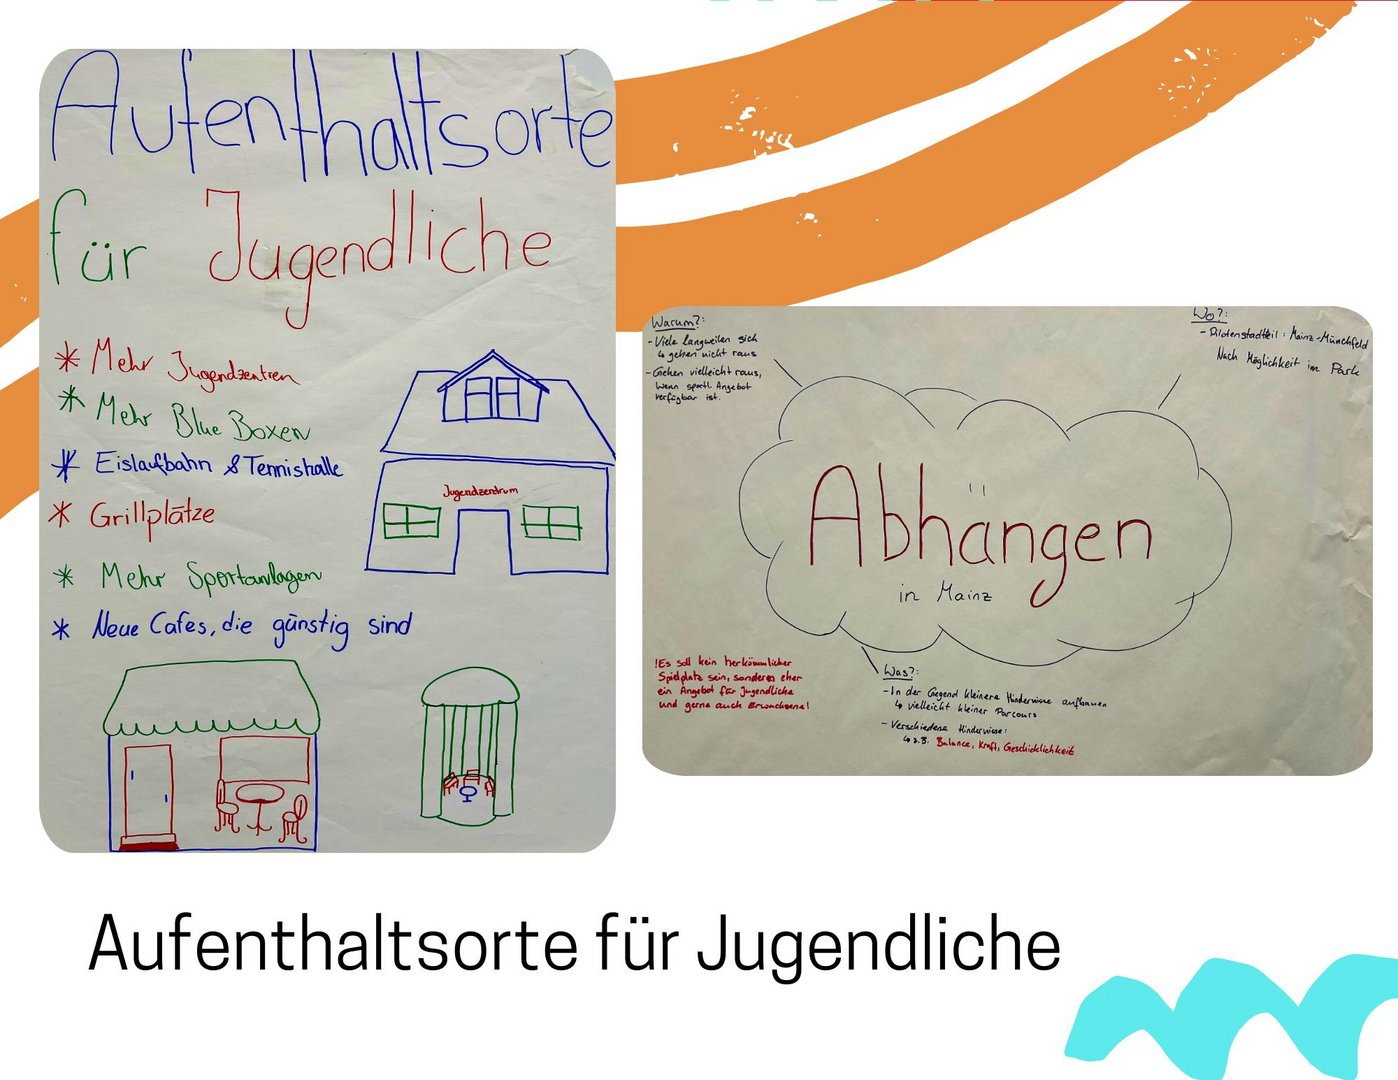 Aufenthaltsorte
für Jugendliche
* Mehr Jugendzentren
* Mehr Blue Boxen
* Eislaufbahn & Tennishalle
* Grillplätze
* Mehr Sportanlagen
* Neue Cafes, die günstig sind
Jugendzentrum
Warum?:
- Viele langweilen sich
↳ gehen nicht raus
- Gehen vielleicht raus,
wenn sportl. Angebot
verfügbar ist.
Wo?:
- Pilotenstadtteil: Mainz-Münchfeld
Nach Möglichkeit im Park
Abhängen
in Mainz
!Es soll kein herkömmlicher
Spielplatz sein, sonderes eher
ein Angebot für Jugendliche
und gerne auch Erwachsene!
Was?:
- In der Gegend kleinere Hindernisse aufbauen
↳ vielleicht kleiner Parcours
- Verschiedene Hindernisse:
↳ z.B. Balance, Kraft, Geschicklichkeit
Aufenthaltsorte für Jugendliche